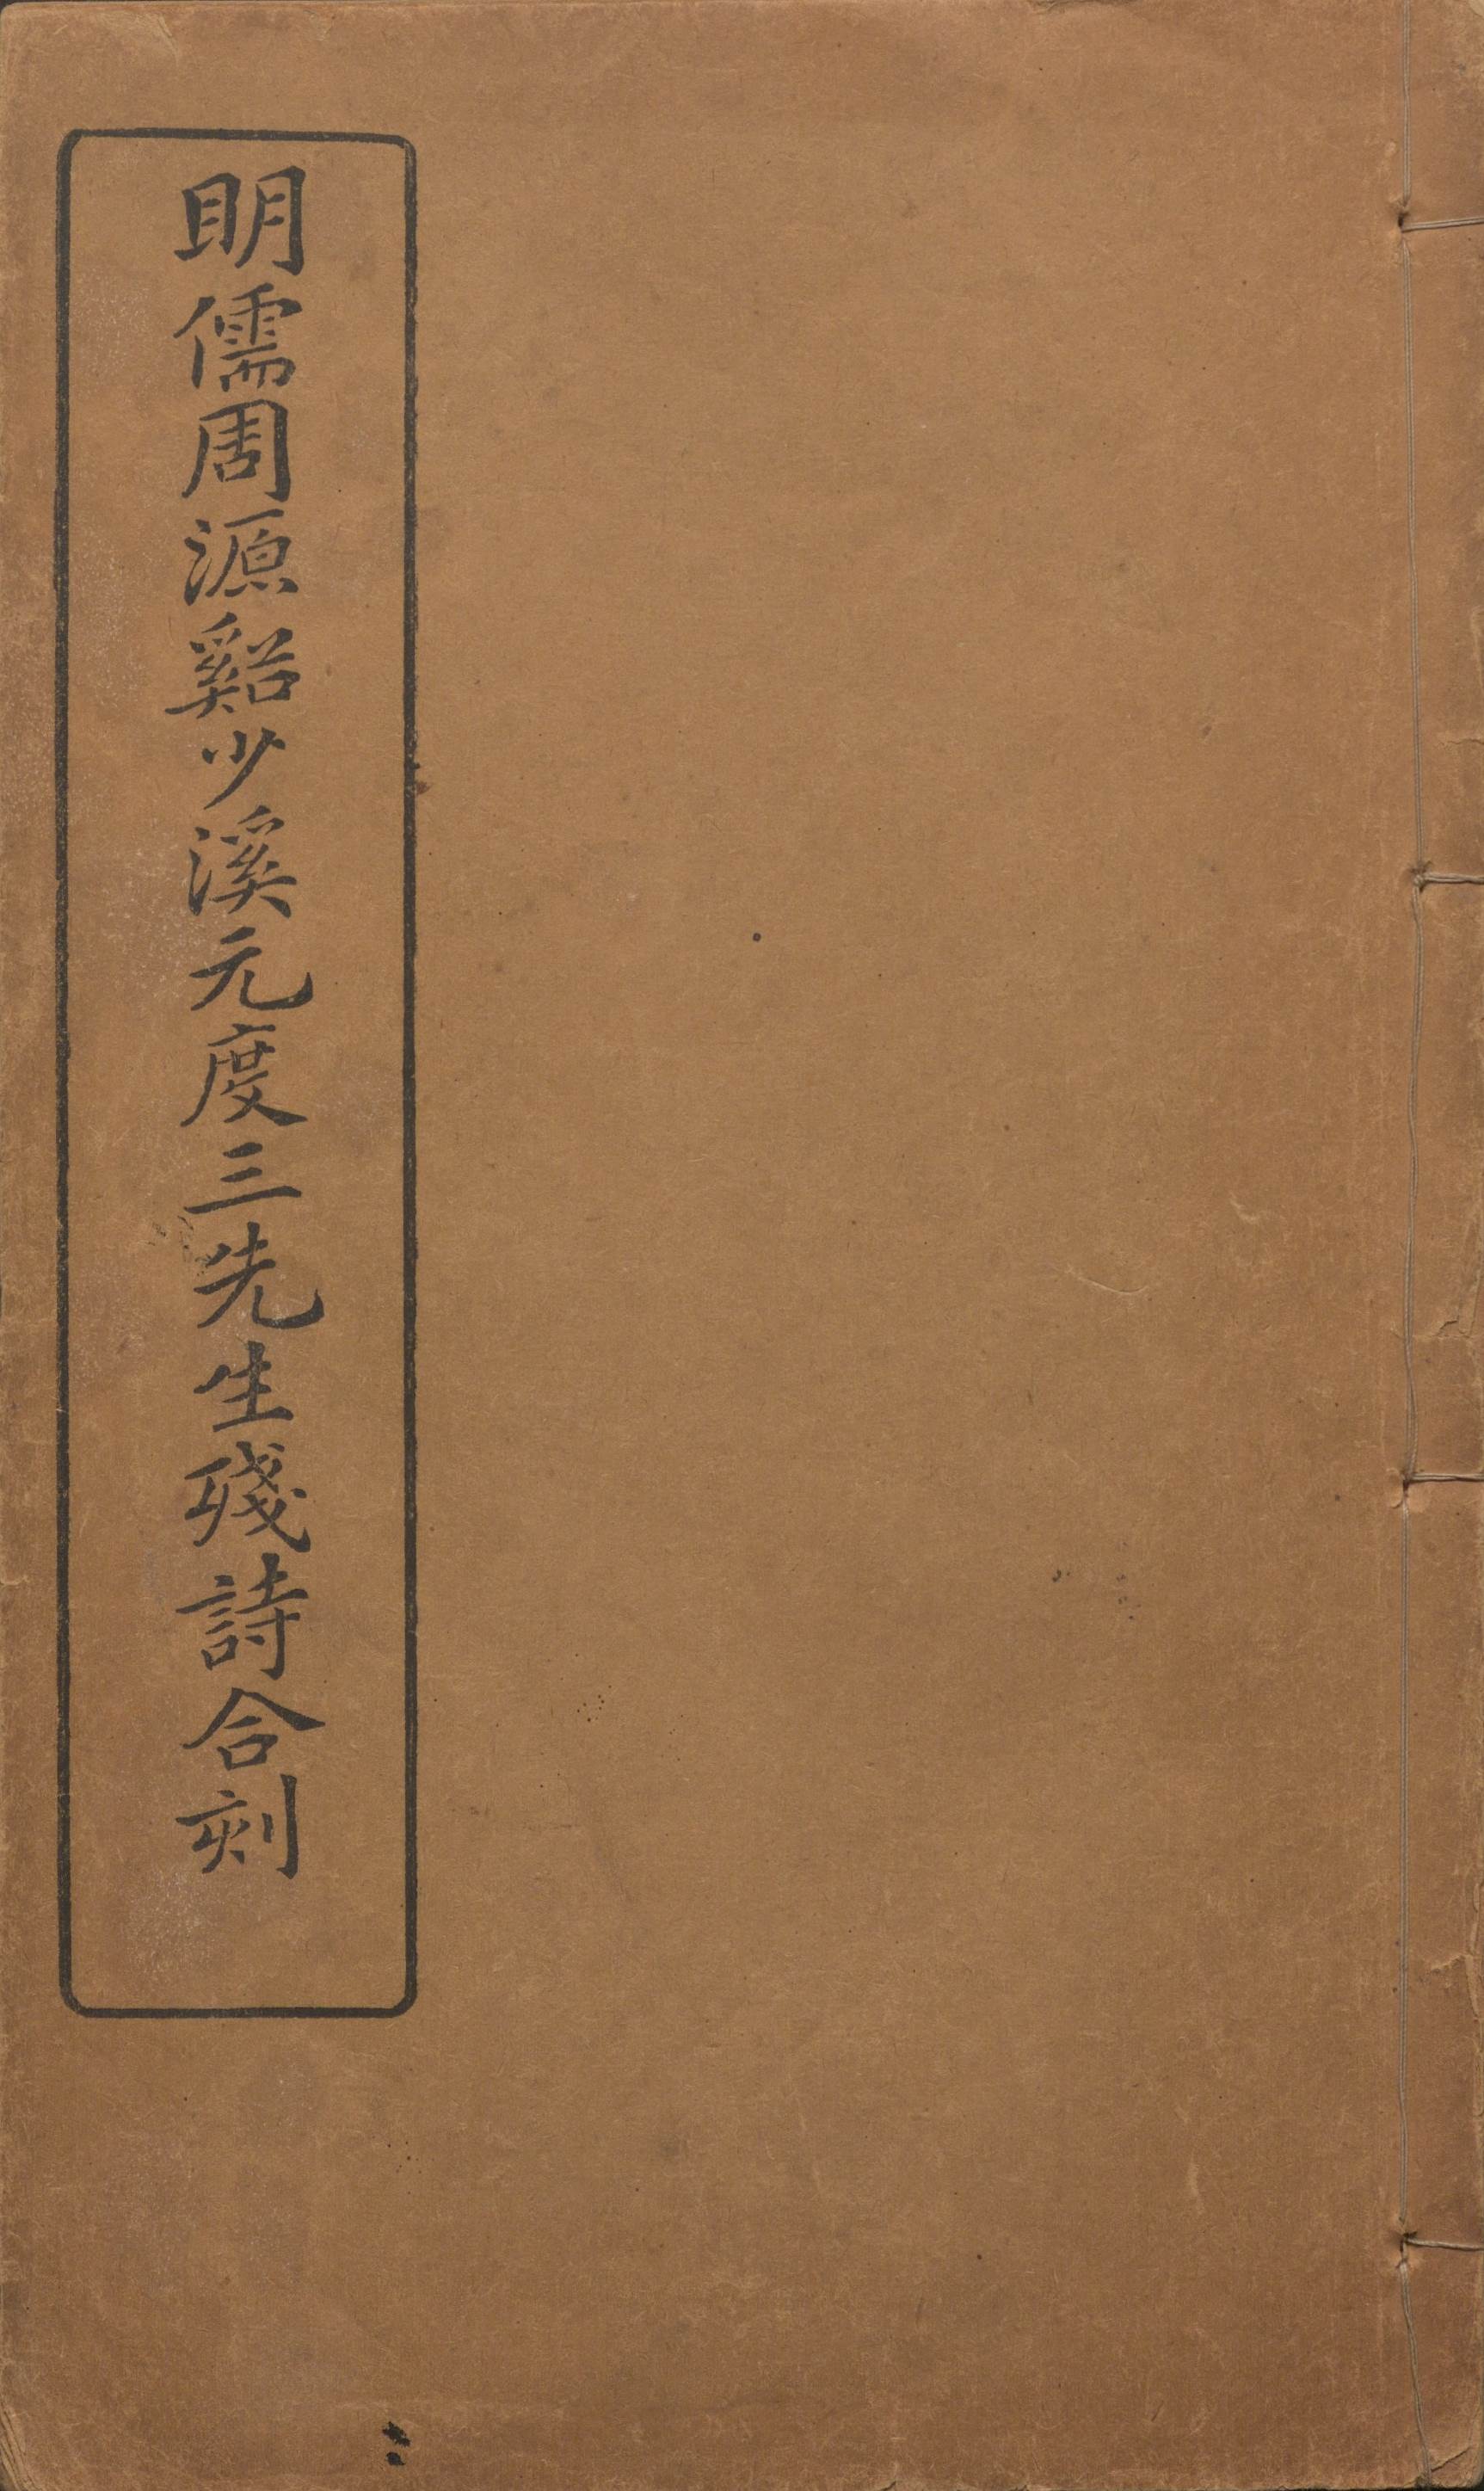 明儒周源谿少溪元度三先生殘詩合刻